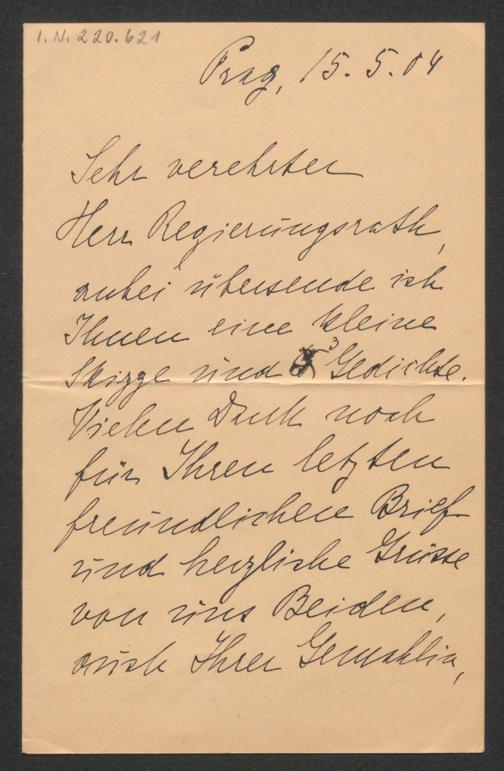 I. N. 220.621
Prag, 15.5.04
Sehr verehrter
Herr Regierungsrath,
anbei übersende ich
Ihnen eine kleine
Skizze und 3 Gedichte.
Vielen Dank noch
für Ihren letzten
freundlichen Brief
und herzliche Grüsse
von uns Beiden,
auch Ihrer Gemahlin,